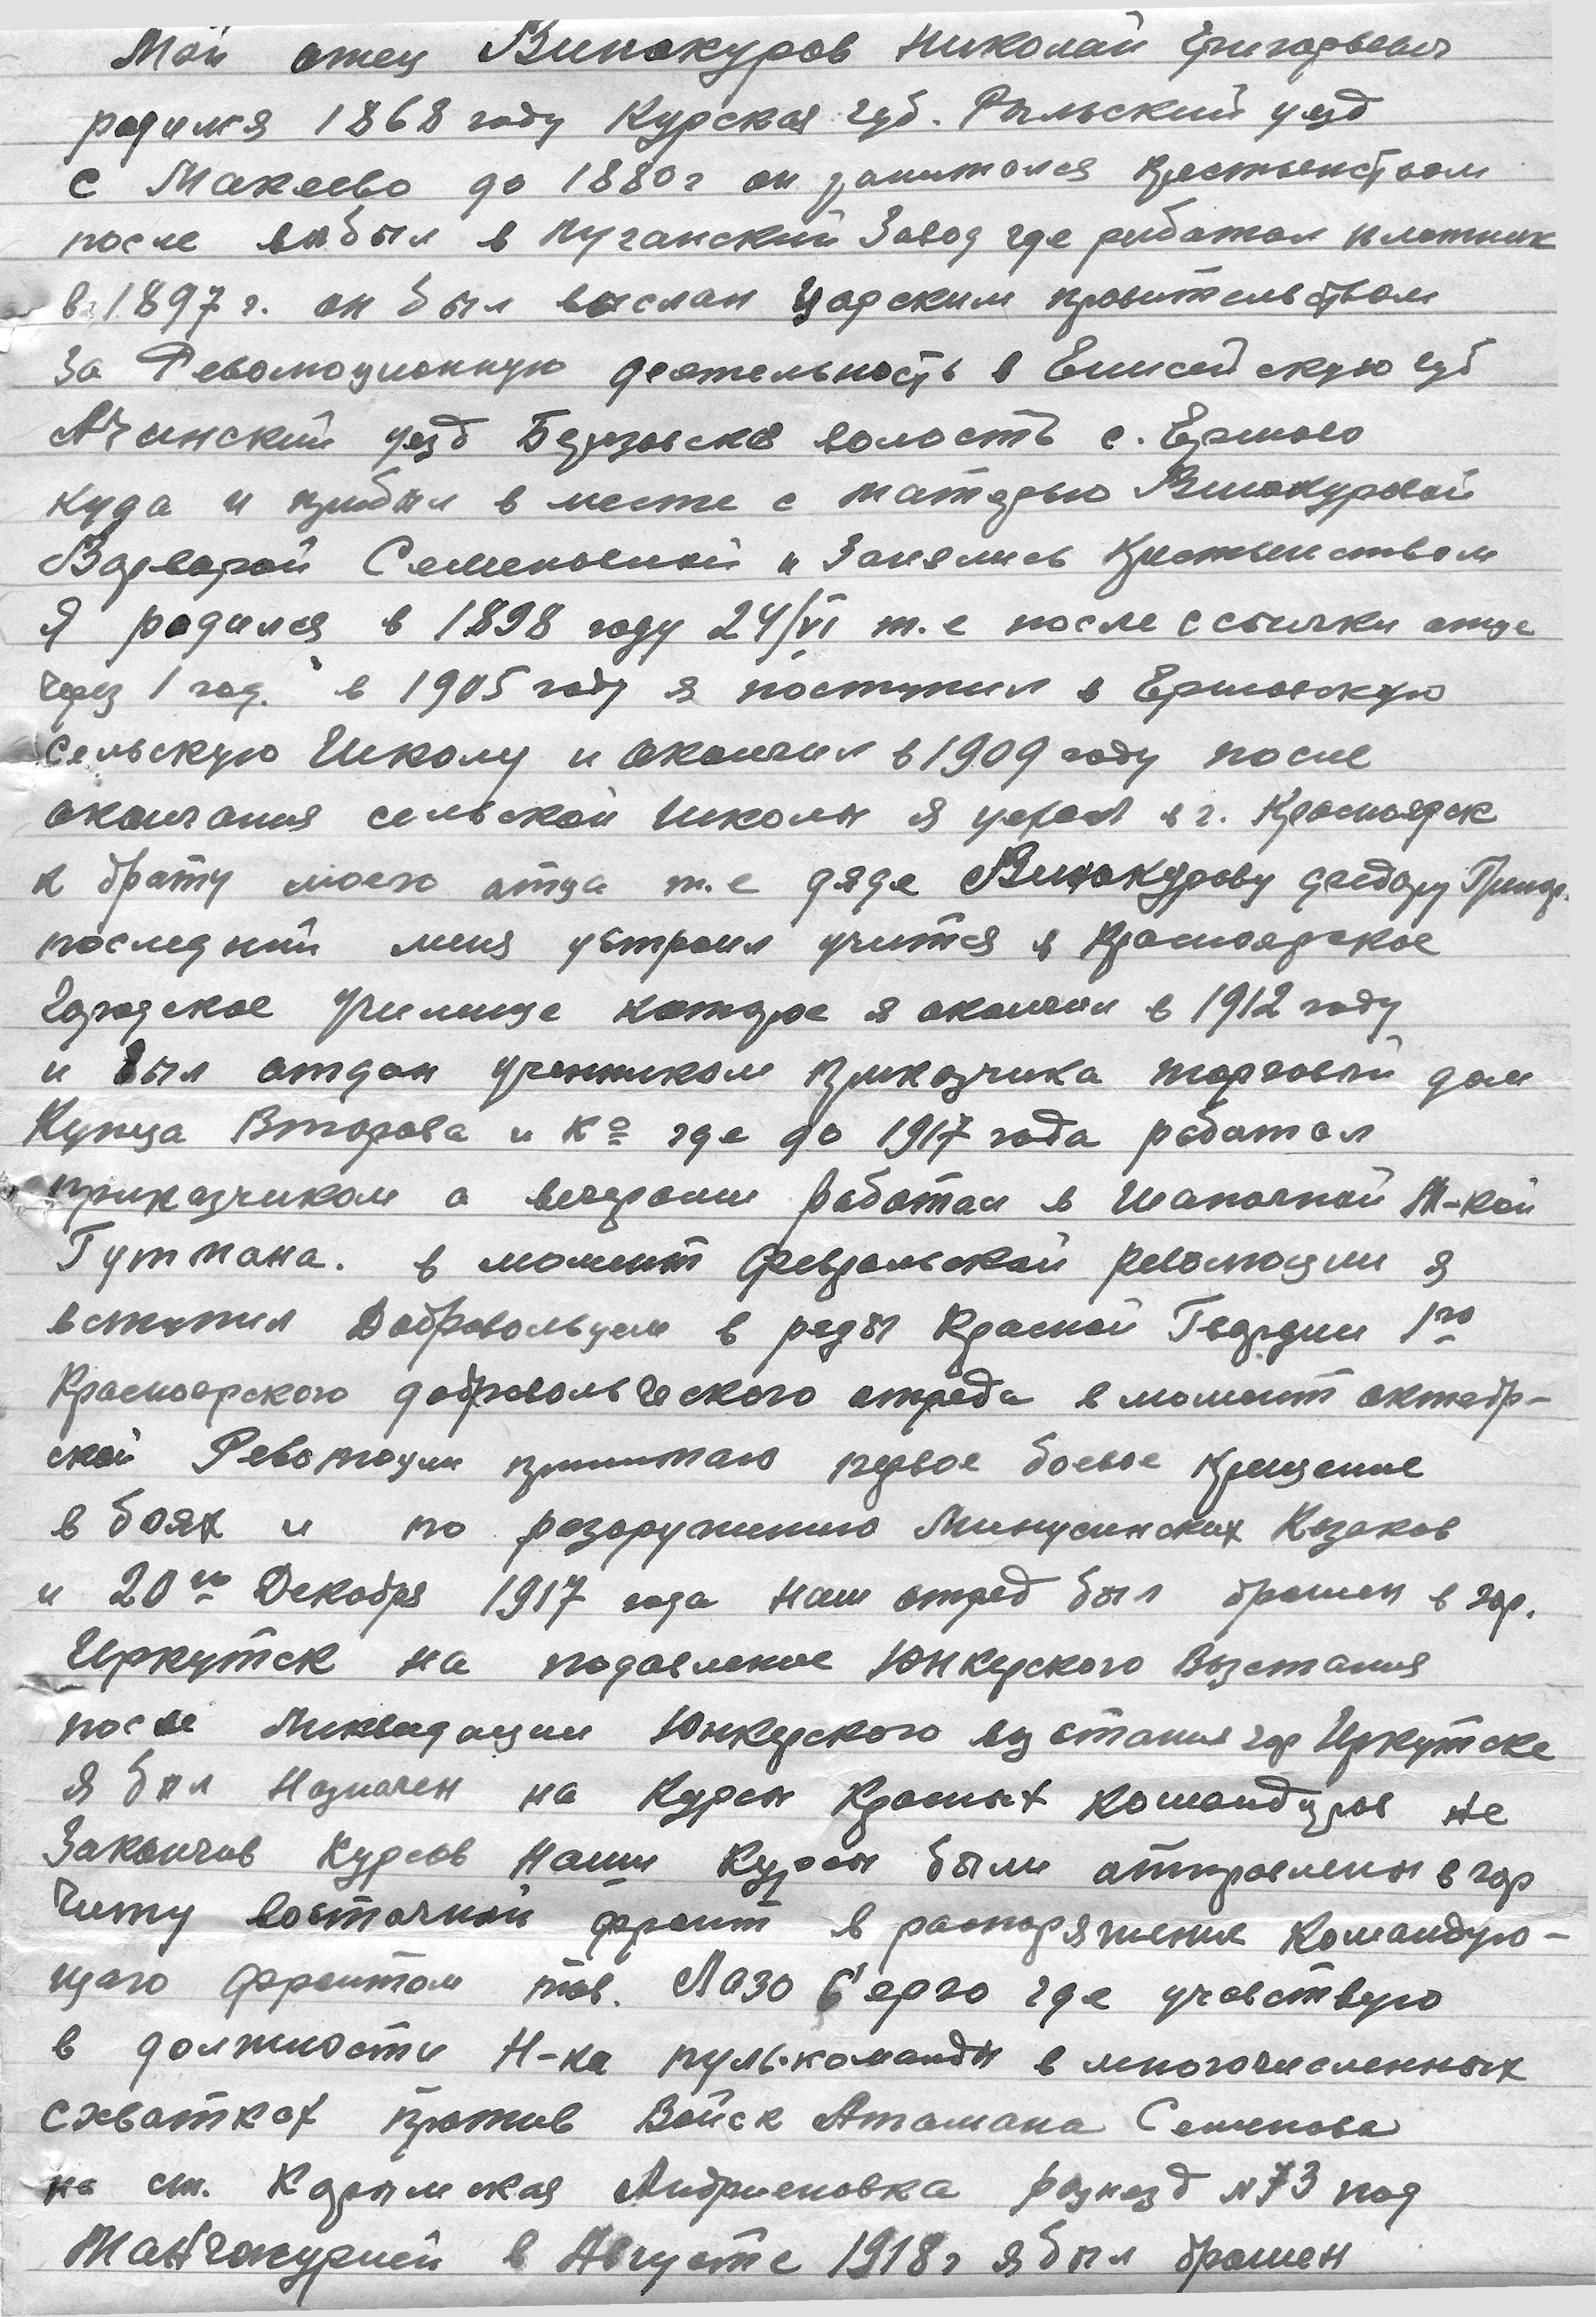 Мой отец Винокуров Николай Григорьевич
родился 1868 году Курская губ. Рыльский уезд
с Макеево до 1880 г он занимался крестьенством
после выбыл в Луганский Завод где работал плотник
в 1897 г. он был выслан Царским правительством
за Революционную деятельность в Енисейскую губ
Ачинский уезд Березовска волость с. Ершово
куда и прибыл в месте с матерью Винокуровой
Варварой Семеновной и Занялись крестьенством
Я родился в 1898 году 24/VI т.е после ссылки отца
через 1 год. в 1905 году я поступил в Ершовскую
Сельскую Школу и окончил в 1909 году после
окончания сельской Школы я уехал в г. Красноярск
к брату моего отца т.е дяде Винокурову Григор.
последний меня устроил учится в Красноярское
Городское Училище которое я окончил в 1912 году
и был отдан учеником приказчика торговый дом
Купца Второва и Ко где до 1917 года работал
приказчиком а вечерами работал в Шапочной М-кой
Гутмана. в момент февральской революции я
вступил Добровольцем в ряды Красной Гвардии 1го
Красноярского добровольческого отряда в момент октябр-
ской Революции принимаю первое боевое крещение
в боях и по разоружению Минусинских Казаков
и 20го Декабря 1917 года наш отряд был брошен в гор.
Иркутск на подавление Юнкерского Возстания
после Ликвидации Юнкерского возстания гор Иркутске
я был Назначен на Курсы Красных Командиров не
Закончив Курсов Наши Курсы были отправлены в гор
Читу восточной фронт в распоряжение Командую-
щаго фронтом тов. Лазо Серго где учавствую
в должности Н-ка пуль.команды в многочисленных
схватках против Войск Атамана Семенова
на ст. Карымская Андриановка разъезд №73 под
Манчжурией в Августе 1918 г я был брошен